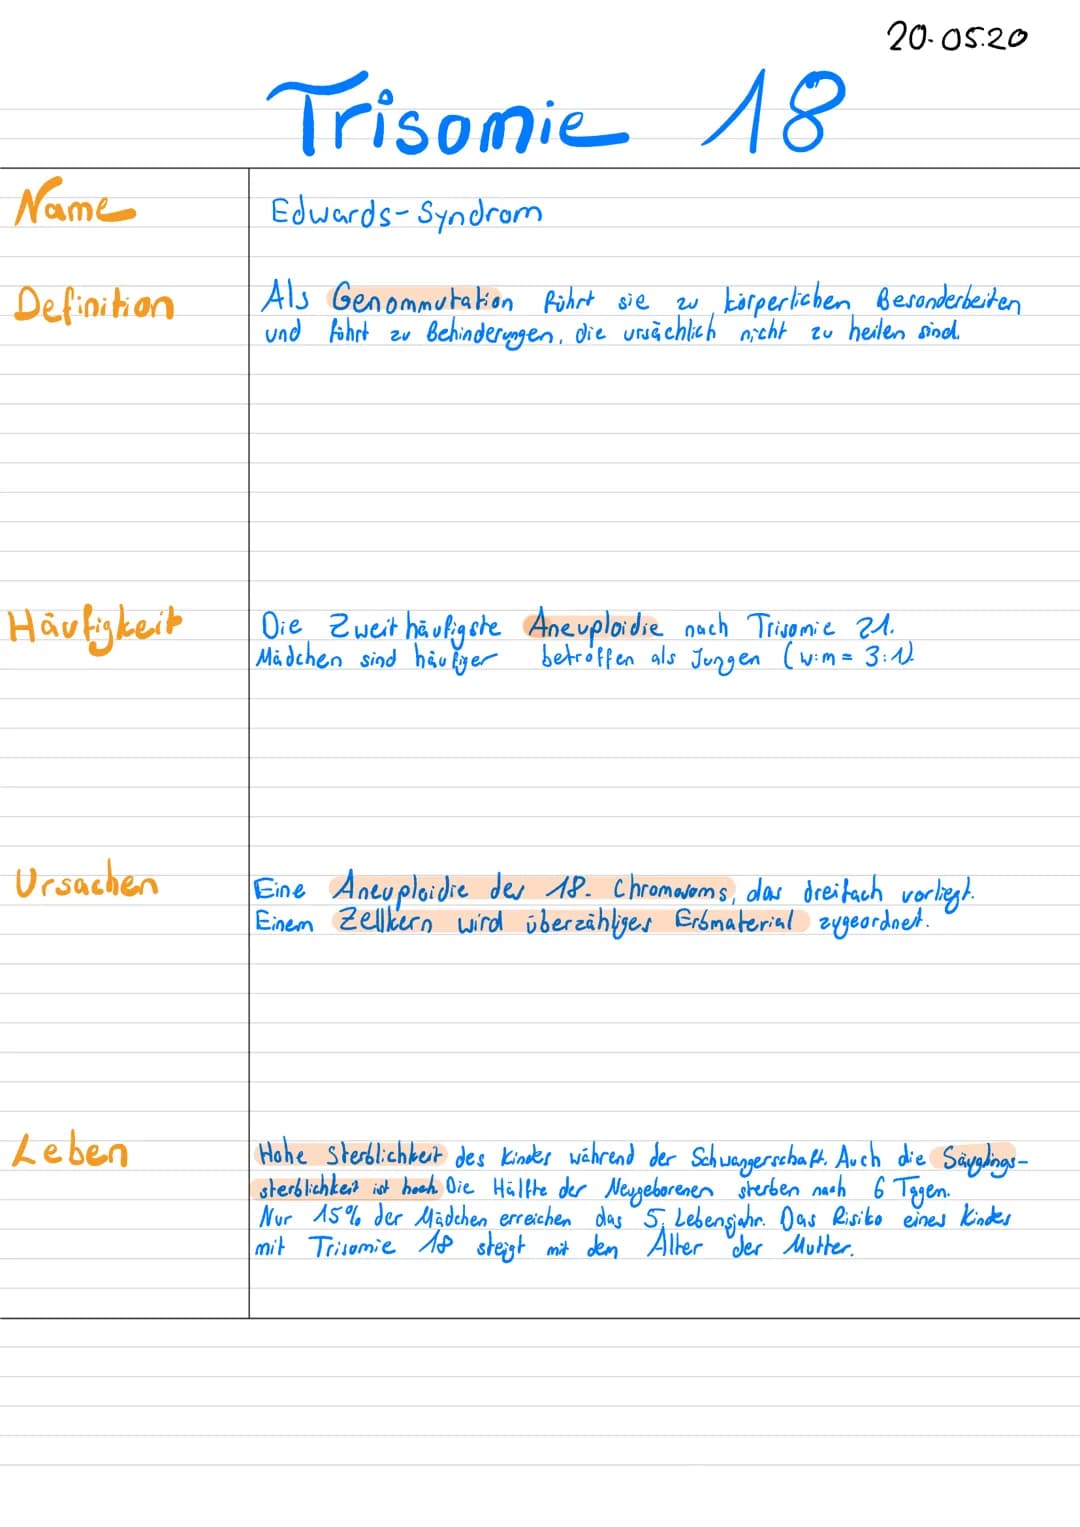 20.05.20
Trisomie 18
Name
Edwards-Syndrom
Definition
Als Genommutation führt sie zu körperlichen Besonderheiten
und führt zu Behinderungen, die ursächlich nicht zu heilen sind.
Häufigkeit
Die Zweithäufigste Aneuploidie nach Trisomie 21.
Mädchen sind häufiger betroffen als Jungen (w:m = 3:1).
Ursachen
Eine Aneuploidie des 18. Chromosoms, das dreifach vorliegt.
Einem Zellkern wird überzähliges Erbmaterial zugeordnet.
Leben
Hohe Sterblichkeit des Kindes während der Schwangerschaft. Auch die Säuglings-
sterblichkeit ist hoch. Die Hälfte der Neugeborenen sterben nach 6 Tagen.
Nur 15% der Mädchen erreichen das 5. Lebensjahr. Das Risiko eines Kindes
mit Trisomie 18 steigt mit dem Alter der Mutter.